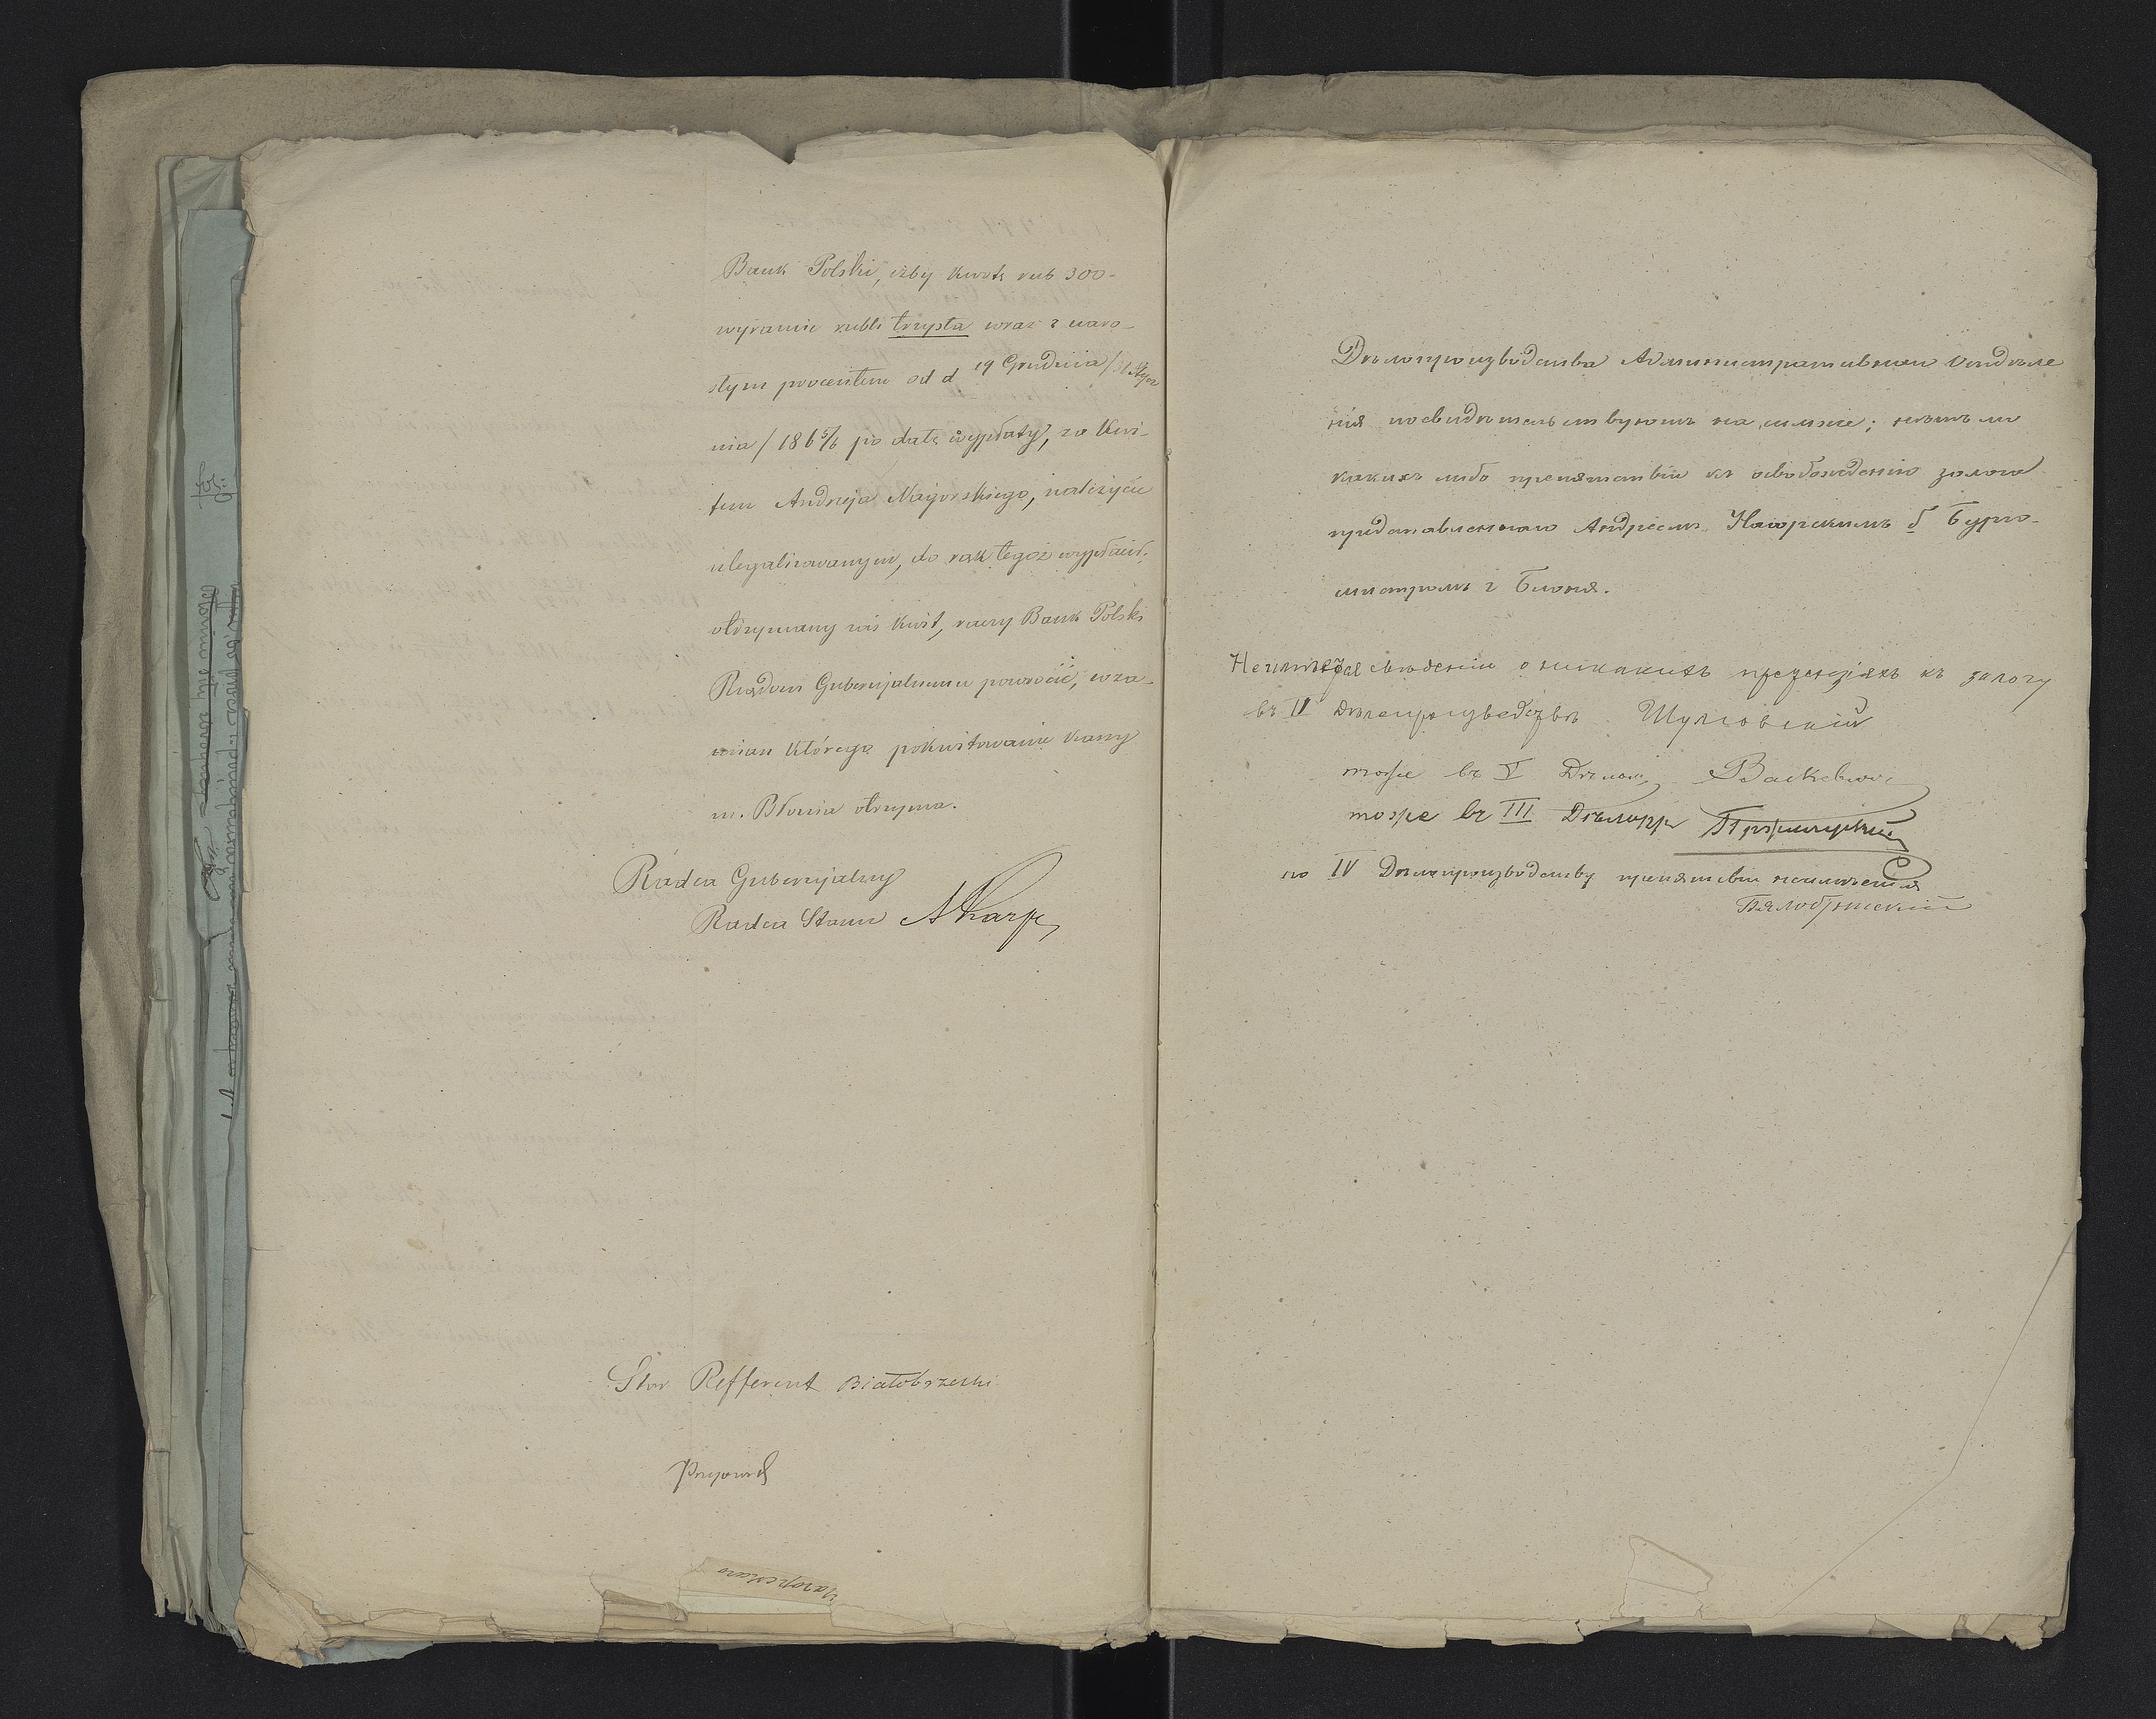 Bank Polski, iżby kwotę rub 300-
wyraźnie rubli trzysta wraz z naro-
słym procentem od d 19 Grudnia/31 Stycz
nia/1865/6 po datę wypłaty, za kwi-
tem Andrzeja Nagórskiego, należycie
ulegalizowanym, do rąk tegoż wypłacił,
otrzymany zaś kwit, raczy Bank Polski
Rządowi Gubernijalnemu powrócić, wza-
mian którego pokwitowanie kassy
m. Błonia otrzyma.
Radca Gubernijalny
Radca Stanu
Star Refferent Białobrzeski
Нагорскаго
Дѣлопроизводства Административнаго Отдѣле
нія посвидѣтельствуютъ на симже; нѣтъ ли
какихъ либо препятствій къ освобожденію залога
представленнаго Андреемъ Нагорскимъ б Бурго-
мистромъ г Блоня.
Неимѣется свѣденіи о никакихъ претензіяхъ къ залогу
въ II Дѣлопроизводствѣ Шулговскій
тоже въ V Дѣлопр
тоже въ III Дѣлопр
по IV Дѣлопроизводству препятствіи неимѣется
Бялобржескій